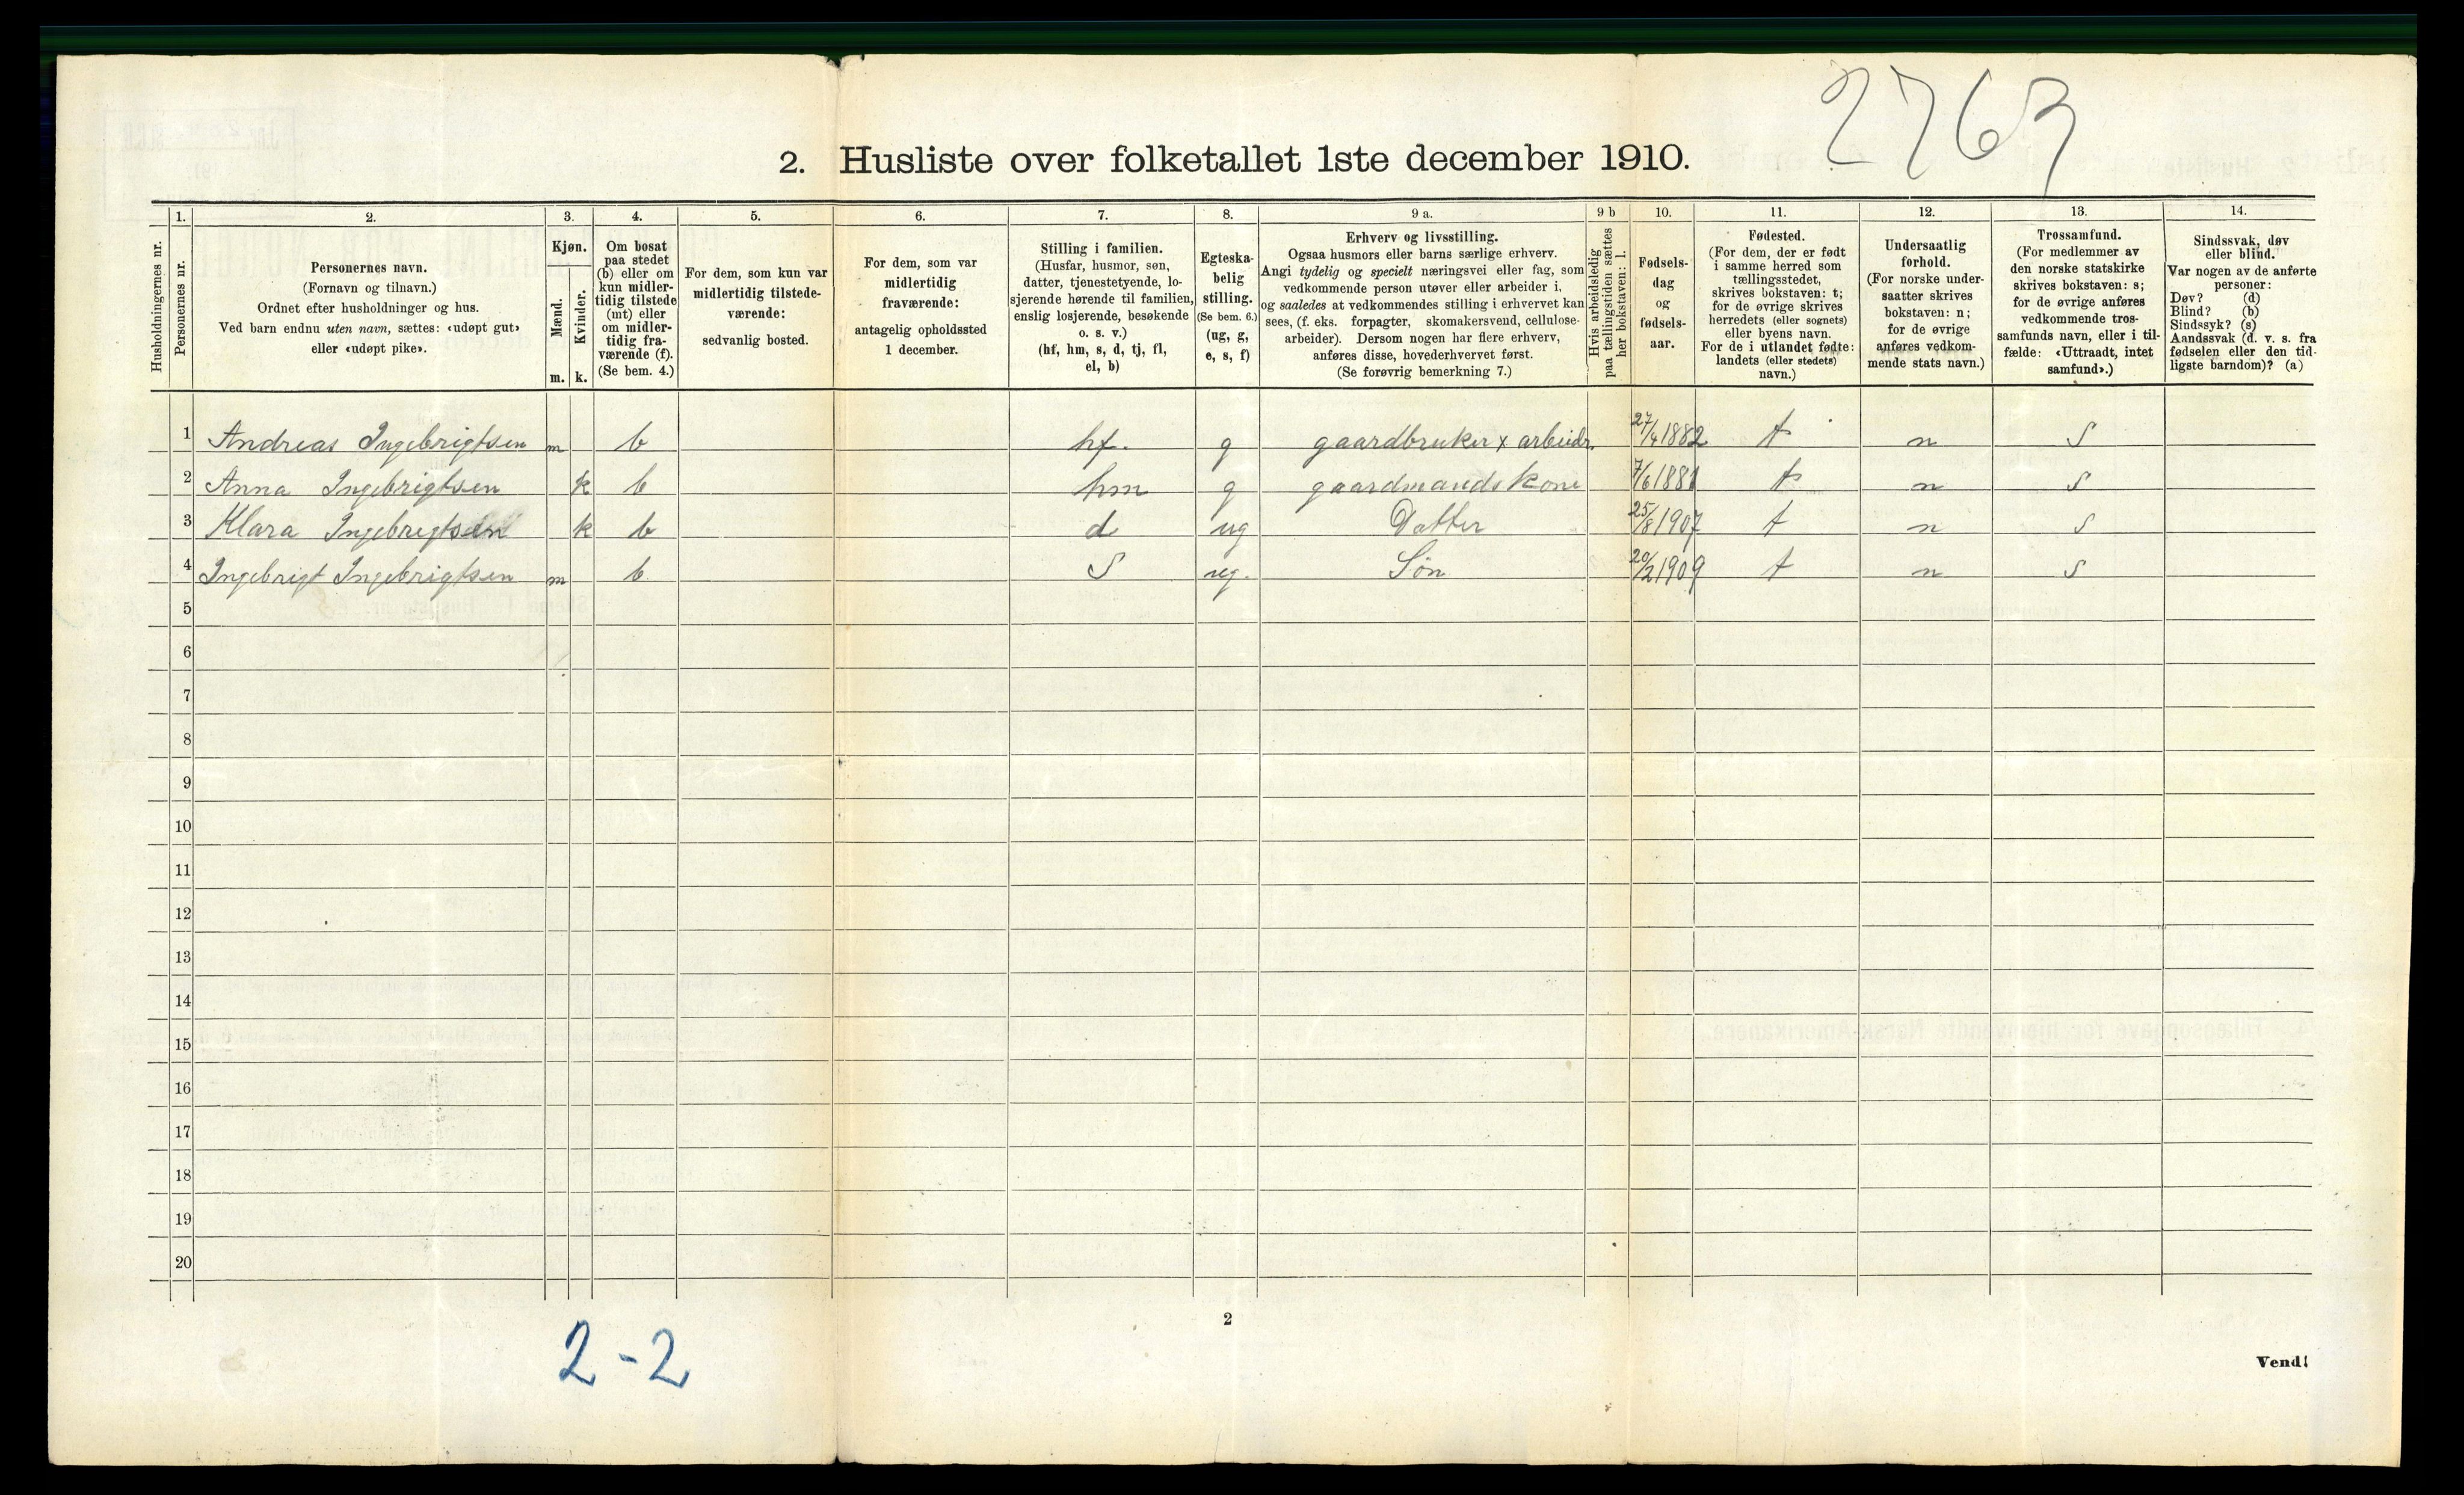 2763
2. Husliste over folketallet 1ste december 1910.
1. 2. 3. 4. 5. 6. 7. 8. 9 a. 9 b 10. 11. 12. 13. 14.
Husholdningernes nr.
Personernes nr.
Personernes navn.
(Fornavn og tilnavn.)
Ordnet efter husholdninger og hus.
Ved barn endnu uten navn, sættes: «udøpt gut»
eller «udøpt pike».
Kjøn.
Mænd.
m.
Kvinder.
k.
Om bosat
paa stedet
(b) eller om
kun midler-
tidig tilstede
(mt) eller
om midler-
tidig fra-
værende (f).
(Se bem. 4.)
For dem, som kun var
midlertidig tilstede-
værende:
sedvanlig bosted.
For dem, som var
midlertidig
fraværende:
antagelig opholdssted
1 december.
Stilling i familien.
(Husfar, husmor, søn,
datter, tjenestetyende, lo-
sjerende hørende til familien,
enslig losjerende, besøkende
o. s. v.)
(hf, hm, s, d, tj, fl,
el, b)
Egteska-
belig
stilling.
(Se bem. 6.)
(ug, g,
e, s, f)
Erhverv og livsstilling.
Ogsaa husmors eller barns særlige erhverv.
Angi tydelig og specielt næringsvei eller fag, som
vedkommende person utøver eller arbeider i,
og saaledes at vedkommendes stilling i erhvervet kan
sees, (f. eks. forpagter, skomakersvend, cellulose-
arbeider). Dersom nogen har flere erhverv,
anføres disse, hovederhvervet først.
(Se forøvrig bemerkning 7.)
Hvis arbeidsledig
paa tællingstiden sættes
her bokstaven: l.
Fødsels-
dag
og
fødsels-
aar.
Fødested.
(For dem, der er født
i samme herred som
tællingsstedet,
skrives bokstaven: t;
for de øvrige skrives
herredets (eller sognets)
eller byens navn.
For de i utlandet fødte:
landets (eller stedets)
navn.)
Undersaatlig
forhold.
(For norske under-
saatter skrives
bokstaven: n;
for de øvrige
anføres vedkom-
mende stats navn.)
Trossamfund.
(For medlemmer av
den norske statskirke
skrives bokstaven: s;
for de øvrige anføres
vedkommende tros-
samfunds navn, eller i til-
fælde: «Uttraadt, intet
samfund».)
Sindssvak, døv
eller blind.
Var nogen av de anførte
personer:
Døv? (d)
Blind? (b)
Sindssyk? (s)
Aandssvak (d. v. s. fra
fødselen eller den tid-
ligste barndom)? (a)
1 Andreas Ingebrigtsen m b hf. g gaardbruker x arbeidr. 27/4 1882 t n S
2 Anna Ingebrigtsen k b hm g gaardmandskone 7/6 1881 t n S
3 Klara Ingebrigtsen k b d ug Datter 25/8 1907 t n S
4 Ingebrigt Ingebrigtsen m b S ug. Søn 20/2 1909 t n S
5
6
7
8
9
10
11
12
13
14
15
16
17
18
19
20
2
2-2
Vend!